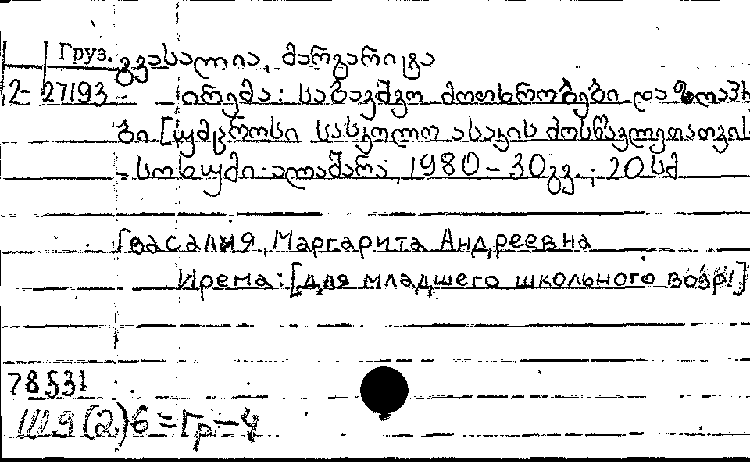 Груз. გვასალია, მარგარიტა
2- 27193 ირემა: საბავშვო მოთხრობები და ზღაპრ
ბი [უმცროსი სასკოლო ასაკის მოსწავლეთათვის
- სოხუმი: ალაშარა, 1980 - 30გვ.; 20 სმ
Гвасалия, Маргарита Андреевна
Ирема: [для младшего школьного возр/]
78531
Ш9(2)6=Гр-4